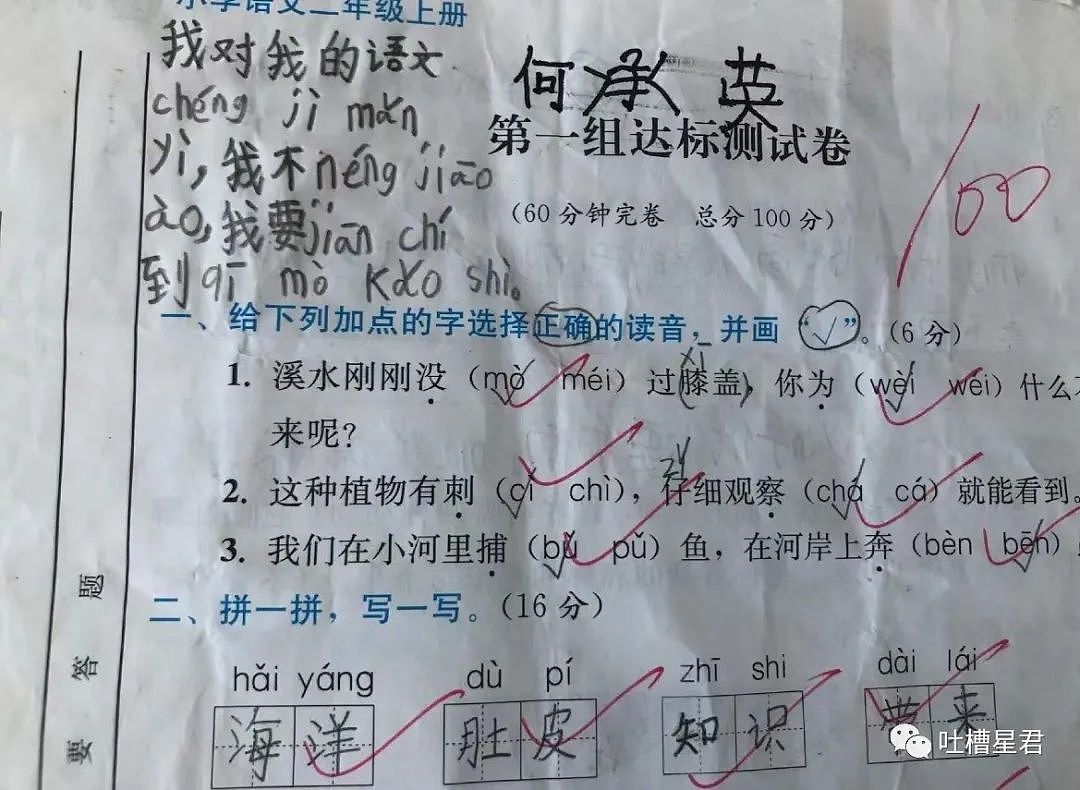 小学语文二年级上册
我对我的语文
chéng jì mǎn
yì，我不néng jiāo
ào，我要jiān chí
到qī mò kǎo shì。
何承英
第一组达标测试卷
（60分钟完卷 总分100分）
100
一、给下列加点的字选择正确的读音，并画“√”。（6分）
xī
1. 溪水刚刚没（mò méi）过膝盖，你为（wèi wéi）什么
来呢？
zǐ
2. 这种植物有刺（cì chì），仔细观察（chá cá）就能看到。
3. 我们在小河里捕（bǔ pǔ）鱼，在河岸上奔（bèn bēn）
二、拼一拼，写一写。（16分）
hǎi yáng dù pí zhī shi dài lái
海洋 肚皮 知识 带来
要 答 题
吐槽星君